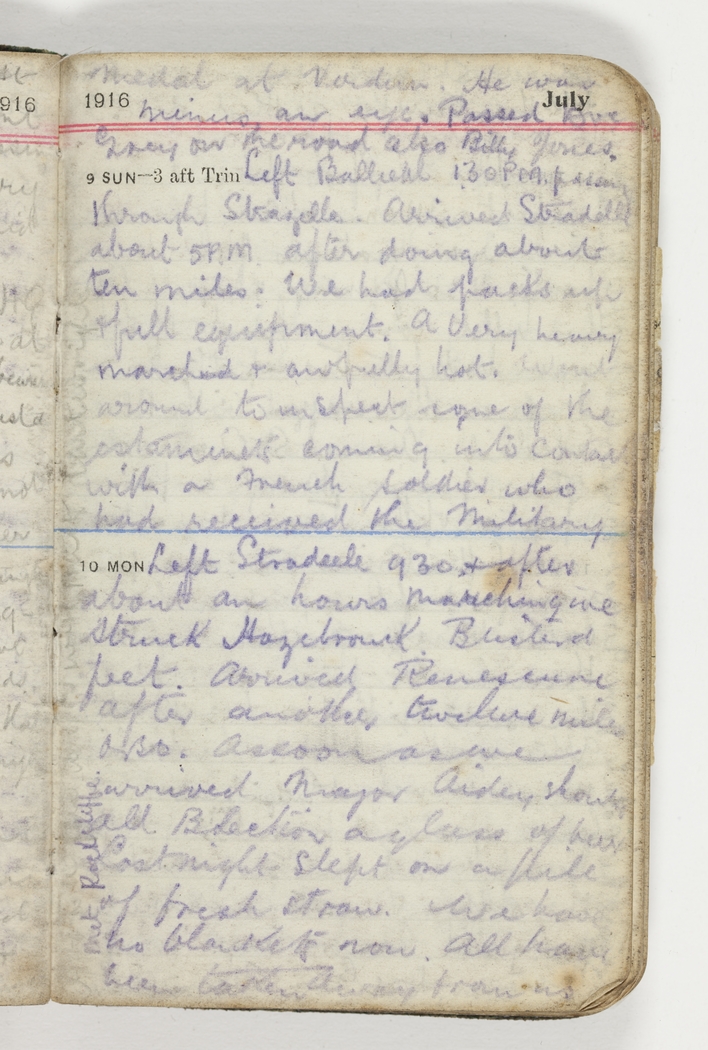 916
Medal at Verdun. He was
1916 July
minus an eye. Passed
on the road also Billy Jones.
9 SUN—3 aft Trin Left Bailleul 1.30 P.M. passing
through Strazelle. Arrived Stradelle
about 5PM after doing about
ten miles. We had packs up
+ full equipment. A very heavy
marched + awfully hot. Went
around to inspect some of the
estaminets coming into contact
with a French soldier who
had received the Military
10 MON Left Stradeele 930 + after
about an hours marching we
struck Hazebrouck. Blisterd
feet. Arrived Renescure
after another twelve miles
or so. As soon as we
arrived Major shouted
all B Section a glass of beer
Last night slept on a pile
of fresh straw. We have
no blankets now. All have
been taken away from us
Met